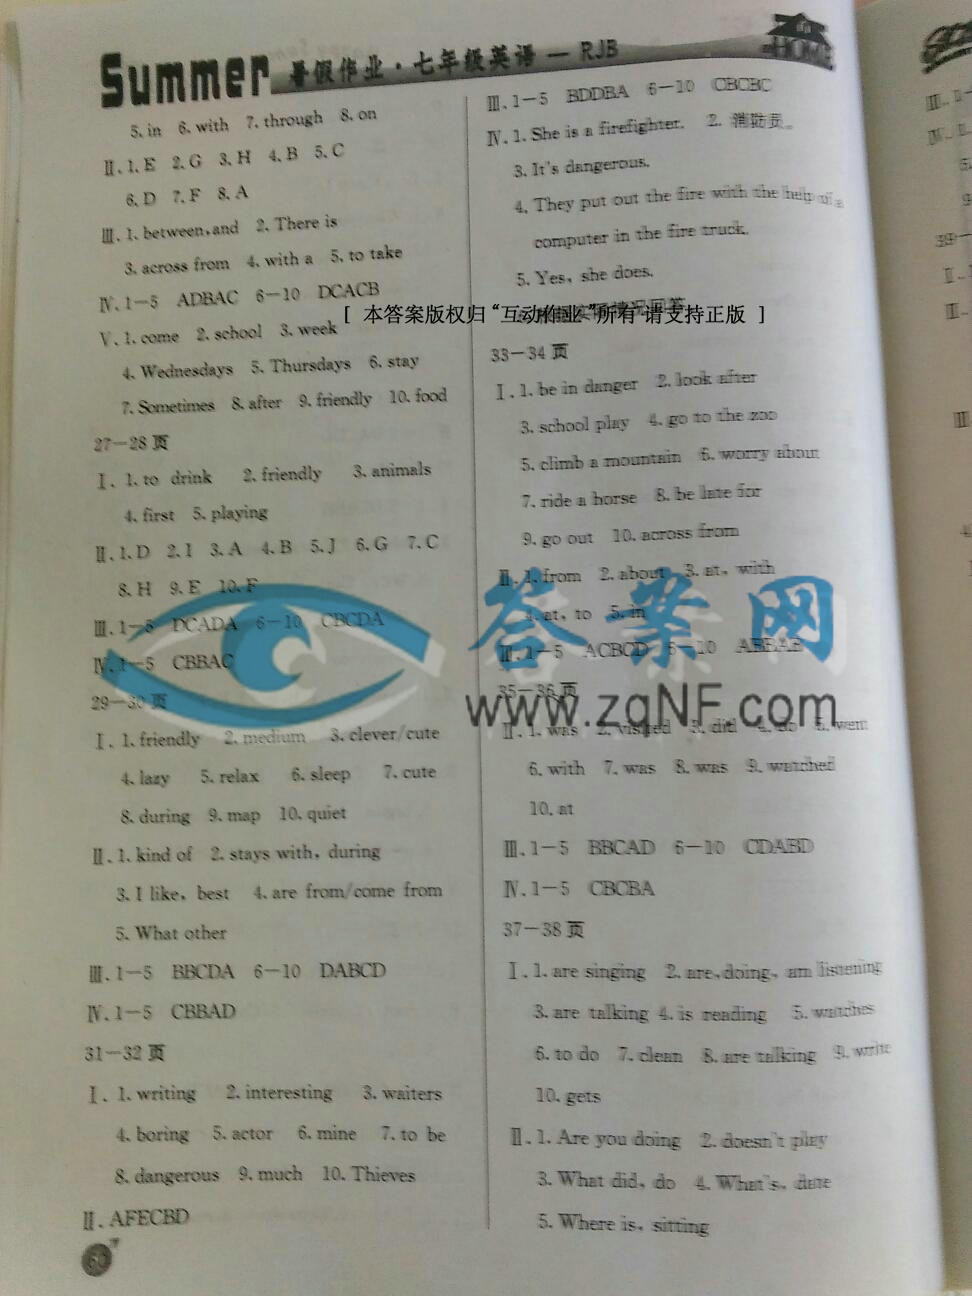 Summer 暑假作业·七年级英语 — RJB
HOME
5. in 6. with 7. through 8. on
Ⅱ. 1. E 2. G 3. H 4. B 5. C
6. D 7. F 8. A
Ⅲ. 1. between, and 2. There is
3. across from 4. with a 5. to take
Ⅳ. 1—5 ADBAC 6—10 DCACB
Ⅴ. 1. come 2. school 3. week
4. Wednesdays 5. Thursdays 6. stay
7. Sometimes 8. after 9. friendly 10. food
27—28页
Ⅰ. 1. to drink 2. friendly 3. animals
4. first 5. playing
Ⅱ. 1. D 2. I 3. A 4. B 5. J 6. G 7. C
8. H 9. E 10. F
Ⅲ. 1—5 DCADA 6—10 CBCDA
Ⅳ. 1—5 CBBAC
29—30页
Ⅰ. 1. friendly 2. medium 3. clever/cute
4. lazy 5. relax 6. sleep 7. cute
8. during 9. map 10. quiet
Ⅱ. 1. kind of 2. stays with, during
3. I like, best 4. are from/come from
5. What other
Ⅲ. 1—5 BBCDA 6—10 DABCD
Ⅳ. 1—5 CBBAD
31—32页
Ⅰ. 1. writing 2. interesting 3. waiters
4. boring 5. actor 6. mine 7. to be
8. dangerous 9. much 10. Thieves
Ⅱ. AFECBD
60
Ⅲ. 1—5 BDDBA 6—10 CBCBC
Ⅳ. 1. She is a firefighter. 2. 消防员。
3. It's dangerous.
4. They put out the fire with the help of a
computer in the fire truck.
5. Yes, she does.
[ 本答案版权归“互动作业”所有 请支持正版 ]
33—34页
Ⅰ. 1. be in danger 2. look after
3. school play 4. go to the zoo
5. climb a mountain 6. worry about
7. ride a horse 8. be late for
9. go out 10. across from
Ⅱ. 1. from 2. about 3. at, with
4. at, to 5. in
Ⅲ. 1—5 ACBCD 6—10 ABBAB
答案网
www.zqNF.com
35—36页
Ⅱ. 1. was 2. visited 3. did 4. do 5. went
6. with 7. was 8. was 9. watched
10. at
Ⅲ. 1—5 BBCAD 6—10 CDABD
Ⅳ. 1—5 CBCBA
37—38页
Ⅰ. 1. are singing 2. are, doing, am listening
3. are talking 4. is reading 5. watches
6. to do 7. clean 8. are talking 9. write
10. gets
Ⅱ. 1. Are you doing 2. doesn't play
3. What did, do 4. What's, date
5. Where is, sitting